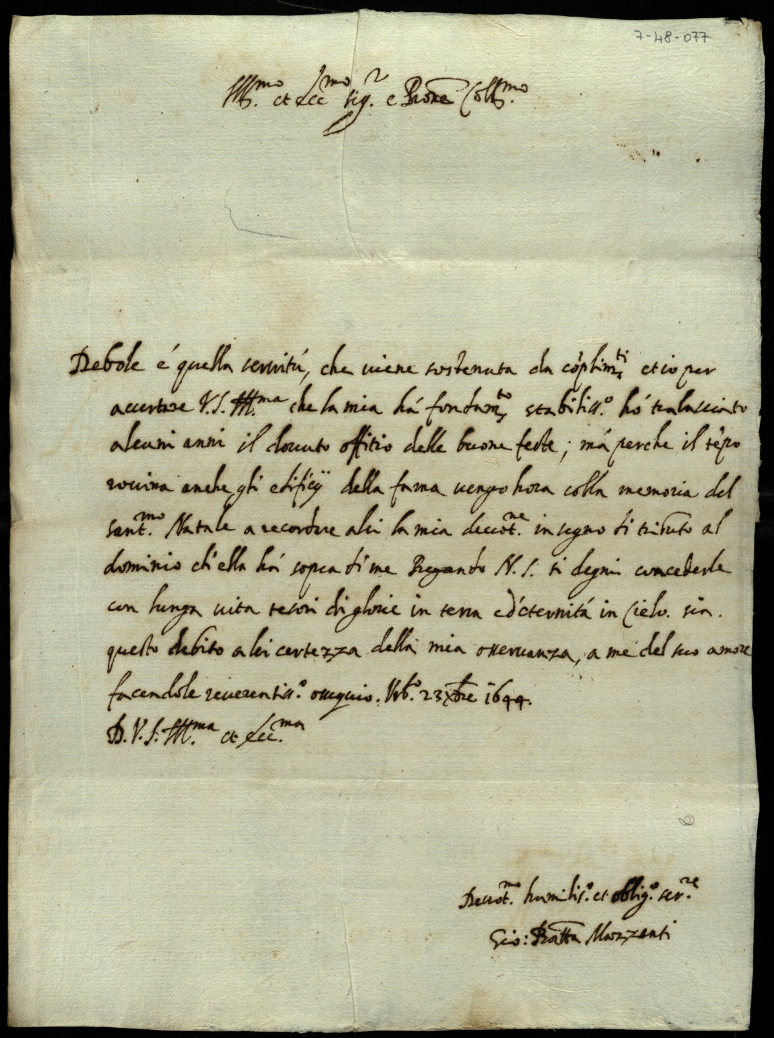 7-48-077
Ill.mo et Ecc.mo Sig.r e Prone Coll.mo
Debole é quella servitú, che viene sostenuta da cóplim.ti et io per
accertare V.S. Ill.ma che la mia há fondam.to stabiliss.o hó tralasciato
alcuni anni il dovuto offitio delle buone feste; má perche il tépo
rovina anche gli edificij della fama vengo hora colla memoria del
sant.mo Natale a recordare a lei la mia devot.ne in segno di tributo al
dominio ch'ella há sopra di me Pregando N.S. si degni concederle
con lunga vita tesori di glorie in terra e d'eternitá in Cielo. sia
questo debito a lei certezza della mia osservanza, a me del suo amore
facendole reverentiss.o ossequio. Urb.o 23 Xbre 1644.
D.V.S. Ill.ma et Ecc.ma
Devot.mo humilis.o et oblig.o ser.re
Gio: Batta Mazzanti